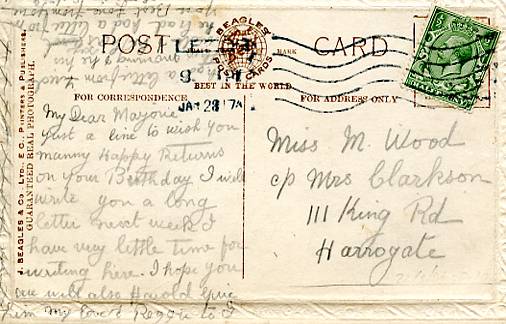 POST CARD
BEAGLES
POST CARDS
TRADE MARK
BEST IN THE WORLD
FOR CORRESPONDENCE
FOR ADDRESS ONLY
J. BEAGLES & CO., LTD., E.C., PRINTERS & PUBLISHERS.
GUARANTEED REAL PHOTOGRAPH.
LEEDS
9 PM
JAN 28 17
HALFPENNY
My Dear Mayorie
Just a line to wish you
manny Happy Returns
on your Birthday I will
write you a long
letter next week I
have very little time for
writing here. I hope you
are will also Harold give
them my love Reggie to
Miss M. Wood
c/o Mrs Clarkson
111 King Rd
Harrogate
a letter from